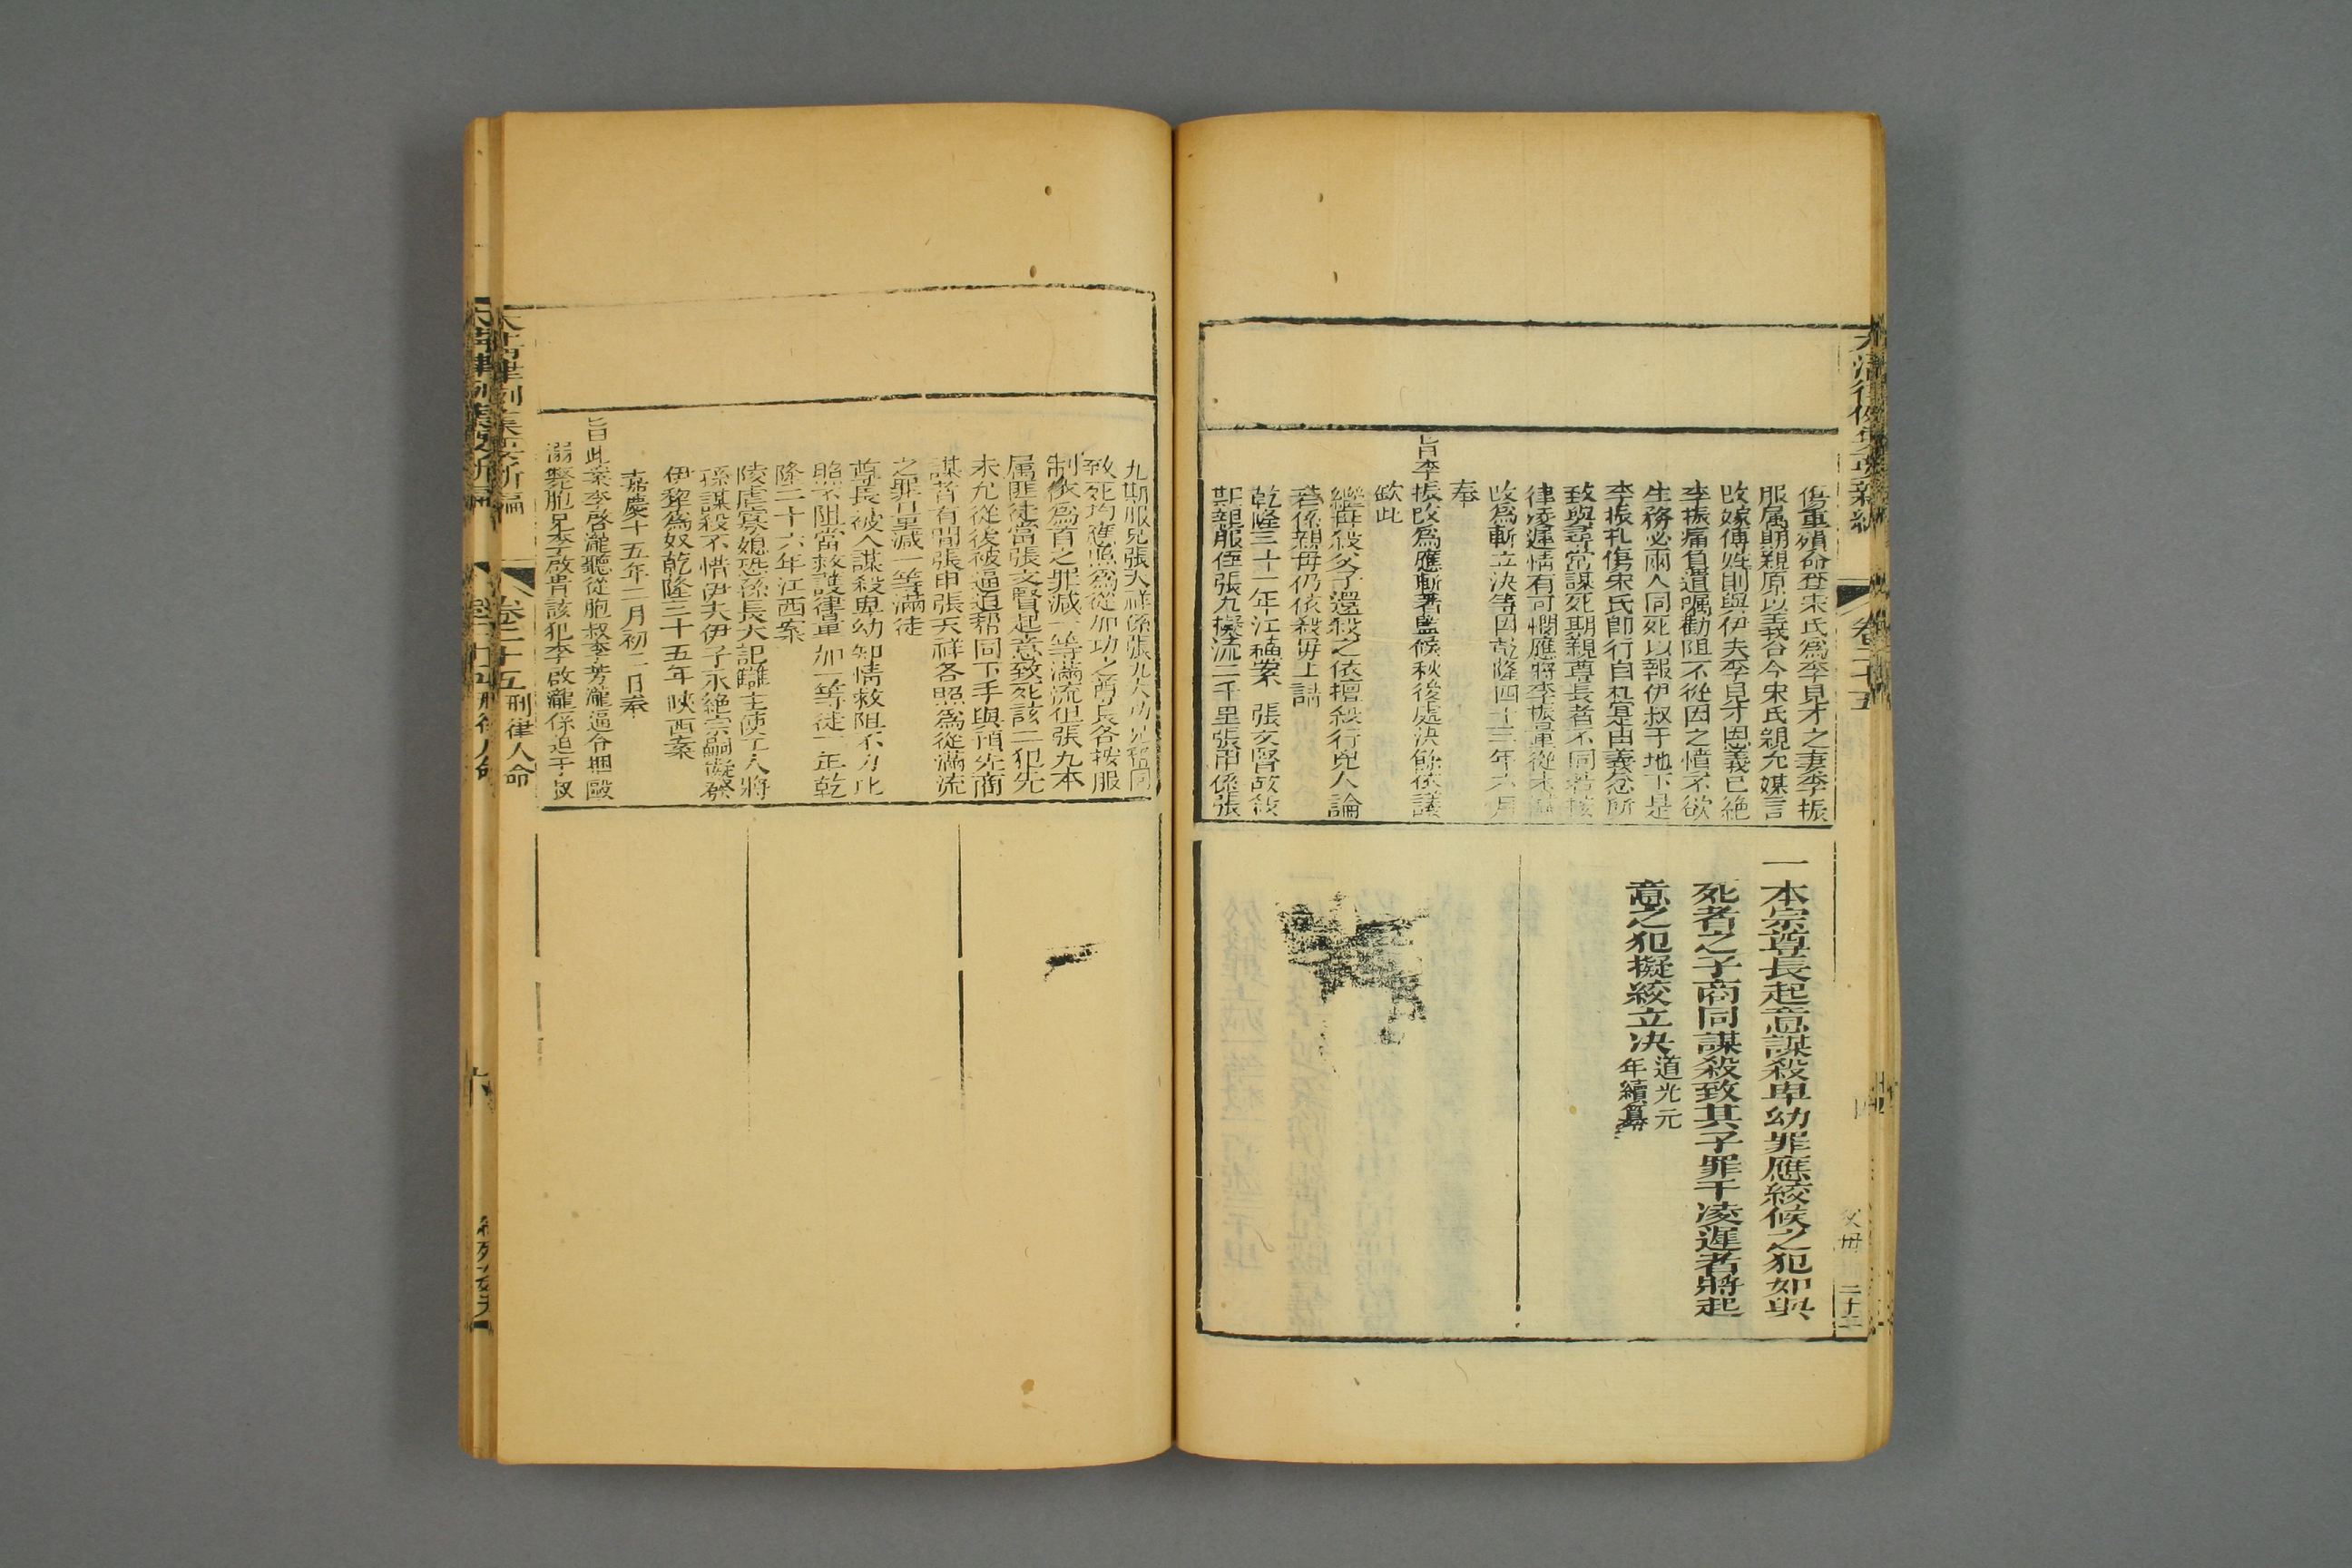 傷重殞命查宋氏爲李見才之妻李振
服属期親原以義合今宋氏親允媒言
改嫁傅姓則與伊夫李見才恩義已絕
李振痛負遺嘱勸阻不從因之憤不欲
生務必兩人同死以報伊叔于地下是
李振扎傷宋氏卽行自扎是由義忿所
致與尋常謀死期親尊長者不同若核
律凌遲情有可憫應將李振量從末減
改爲斬立決等因乾隆四十三年六月
奉
旨李振改爲應斬著監候秋後處決餘依議
欽此
繼母殺父子還殺之依擅殺行兇人論
若係親母仍依殺毋上請
乾隆三十一年江蘇案 張文賢故殺
期親服侄張九擬流二千里張甲係張
一本宗尊長起意謀殺卑幼罪應絞候之犯如與
死者之子商同謀殺致其子罪干凌遲者將起
意之犯擬絞立决道光元
年續纂
九期服兄張天祥係張九大功兄輒同
致死均應照爲從加功之尊長各按服
制依爲首之罪減一等滿流但張九本
属匪徒當張文賢起意致死該二犯先
未允從後被逼迫帮同下手與預先商
謀者有間張甲張天祥各照爲從滿流
之罪月量減一等滿徒
尊長被人謀殺卑幼知情救阻不力比
照不阻當救護律量加一等徒一年乾
隆二十六年江西案
陵虐寡媳恐孫長大記讎主使工人將
孫謀殺不惜伊夫伊子永絕宗嗣擬發
伊犂爲奴乾隆三十五年陝西案
嘉慶十五年二月初二日奉
旨此案李啓瀧聽從胞叔李芳瀧逼令捆毆
溺斃胞兄李啟貴該犯李啟瀧係迫于叔
卷二十五 刑律人命